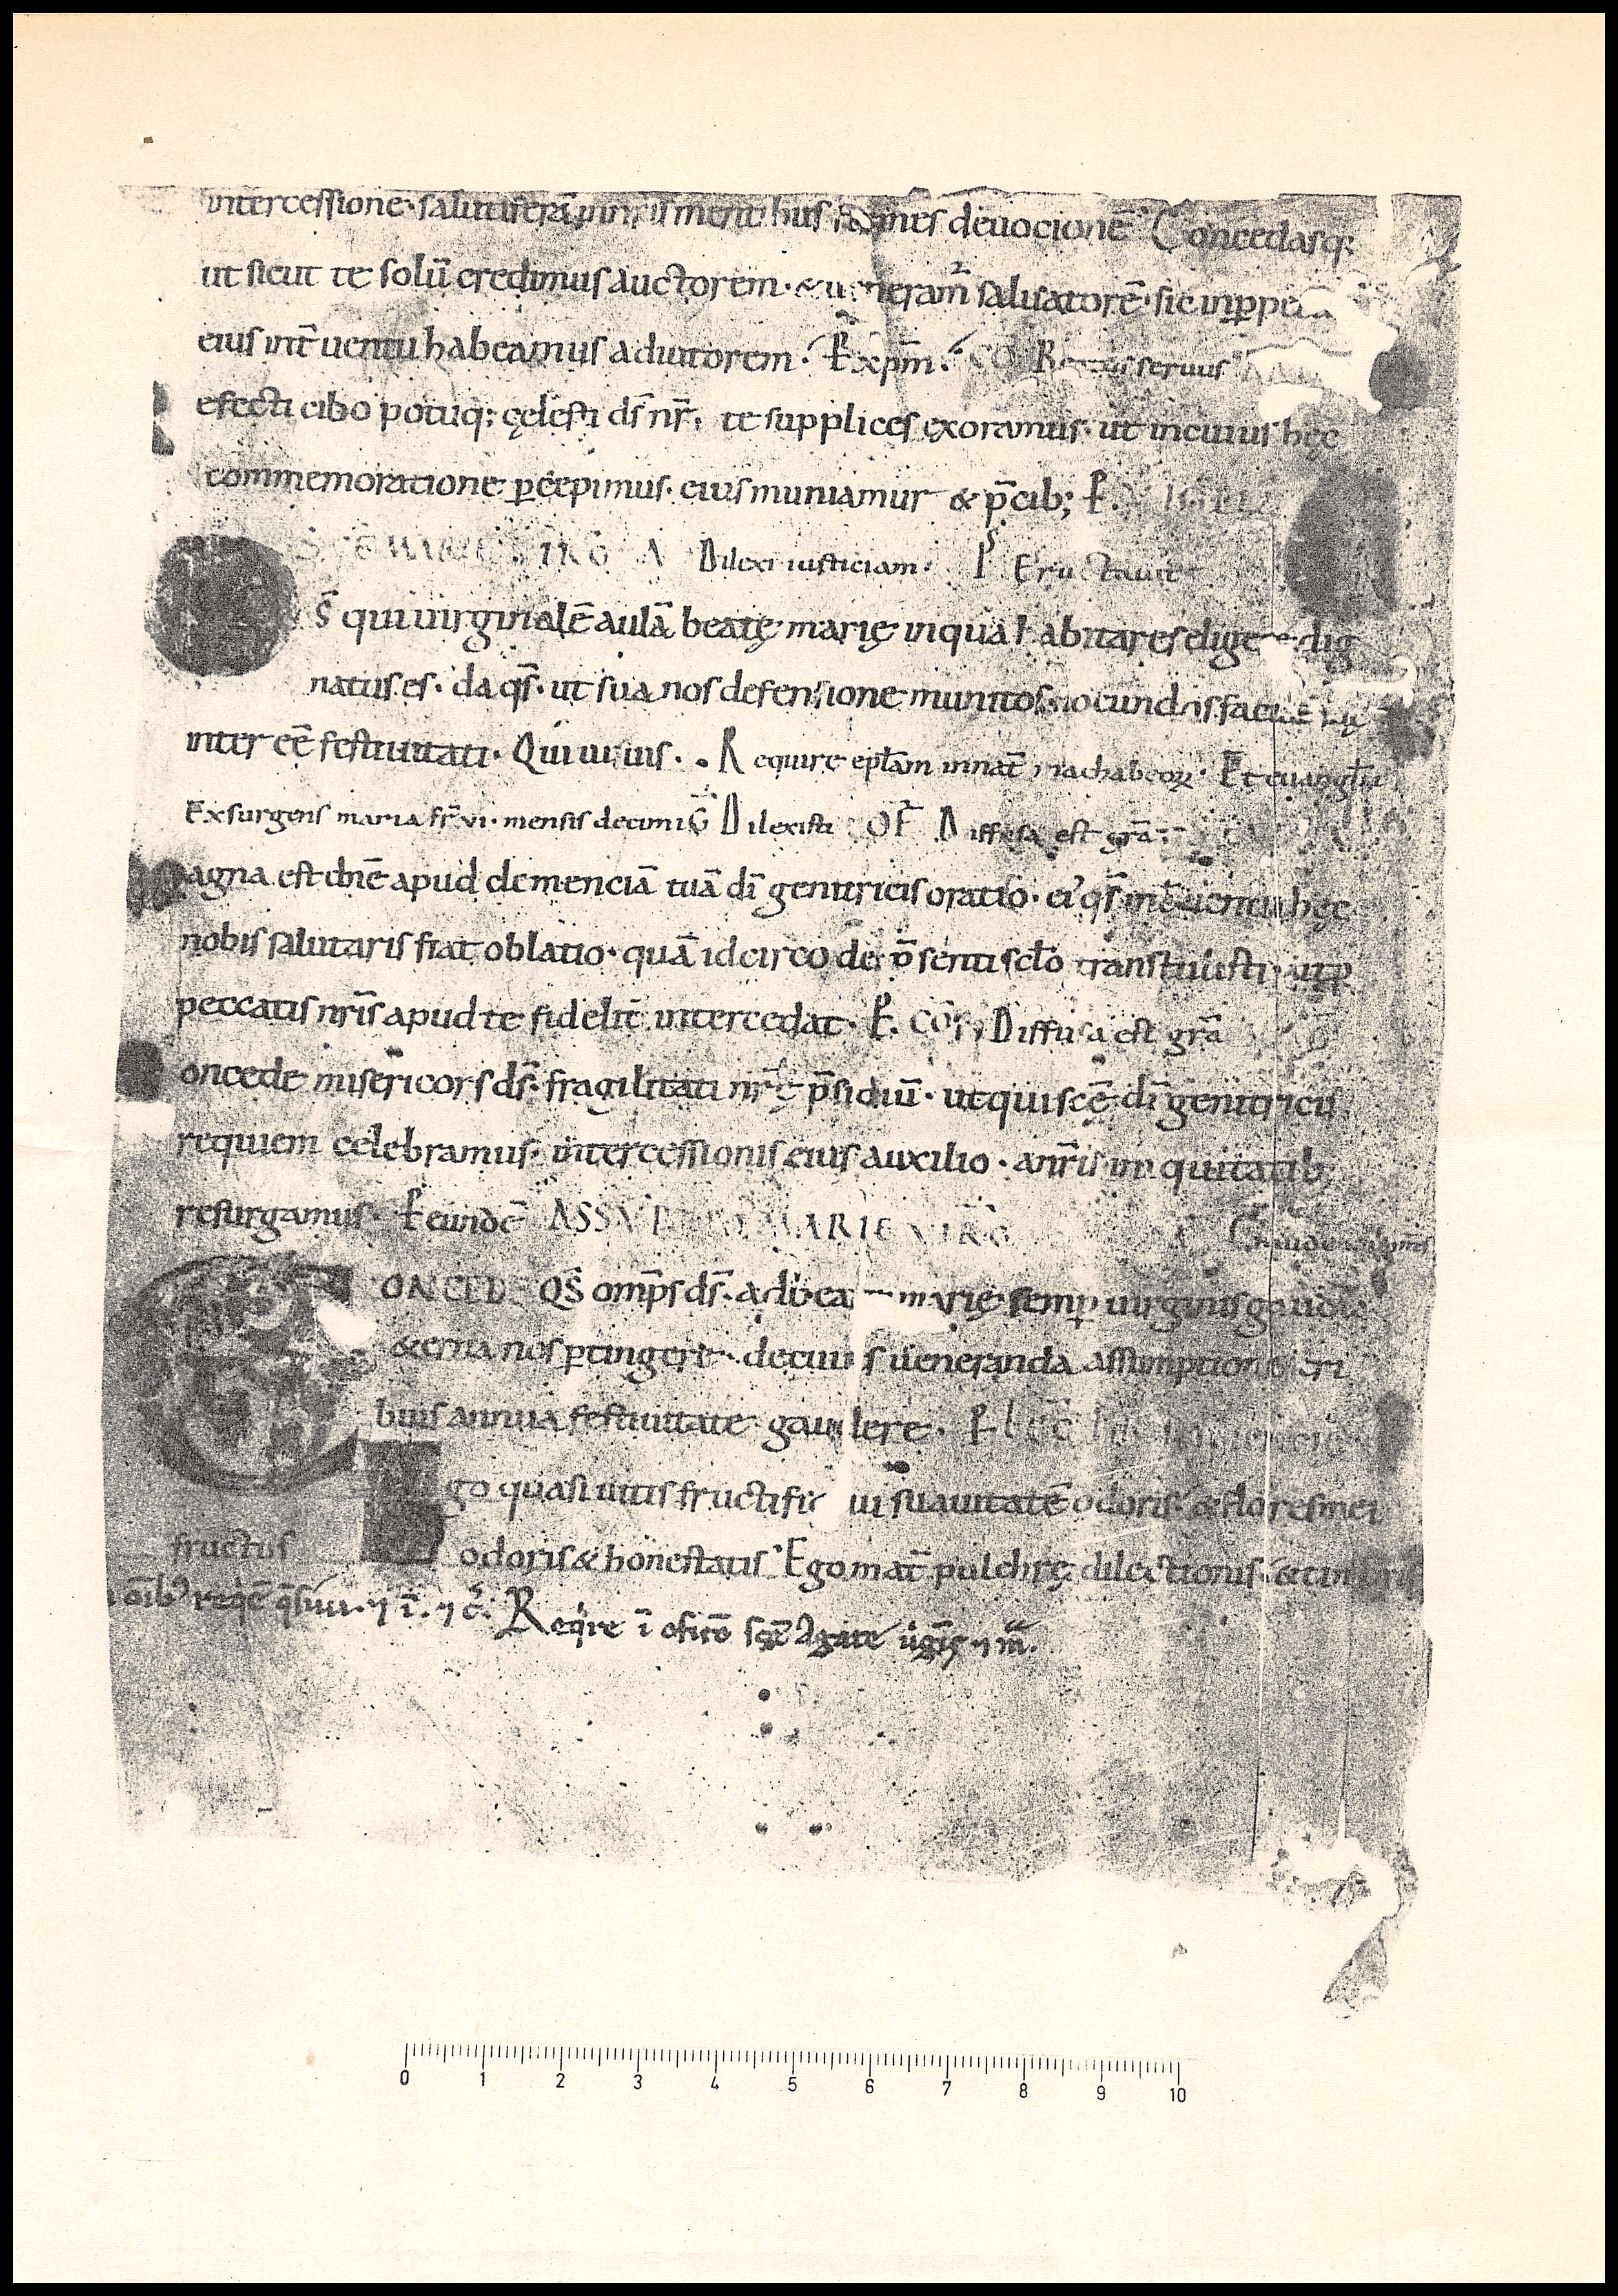 intercessione· salutiferā inn̄is mentibus formes deuocionē Concedasq;
ut sicut te solū credimus auctorem· & ueneram̄ salvatorē· sic inꝑpe
eius int̄uentu habeamus adiutorem· P̄ xp̄m· CO Beatus seruus
efecti cibo potuq; cęlesti ds̄ nr̄, te supplices exoramus· ut in cuius hęc
commemoratione ꝑcepimus· eius muniamur & p̄cib; P̄
S̄CĒ MARIE Dilexi iusticiam· Ps Eructauit
s̄ qui uirginalē aulā beatę marię in qua habitares eligere dig
natus es· da qs̄· ut sua nos defensione munitos· iocundos faciat suę
inter eē festiuitati· Qui uiuis· Require epl̄am in nat̄ machabeoꝝ· Et euangl̄iū
Exsurgens maria fr̄ vi· mensis decimi G̅ Dilexisti OF̄ Diffusa est gr̄a·
agna est dn̄e apud clemenciā tuā dī genitricis oratio· ei' qs̄ int̄uentu hęc
nobis salutaris fiat oblatio· quā idcirco de p̄senti scl̄o transtulisti· ut ꝑ
peccatis nr̄is apud te fidelit̄ intercedat· P̄. CŌ Diffusa est gr̄a
oncede misericors ds̄· fragilitati nr̄ę p̄sidiū· ut qui scē dī genitricis
requiem celebramus· intercessionis eius auxilio· a nr̄is iniquitatib;
resurgamus· P̄ eundē ASSVMPTIO MARIE VIRG Gaudeamus
ONCEDE QS̄ omp̄s ds̄· ad bea marię semꝑ uirginis gaudia
&erna nos ꝑtingere· de cuius ueneranda assumptione tri
buis annua festiuitate gaudere· P̄
go quasi uitis fructificaui suauitatē odoris· & flores mei
fructus odoris & honestatis· Ego mat̄ pulchrę dilectionis· & timoris
oīb' reqē q̄siui· ⁊ ī· ⁊ c̄· Reqire ī oficio scē Agate uīgis ⁊ m̄r·
0 1 2 3 4 5 6 7 8 9 10